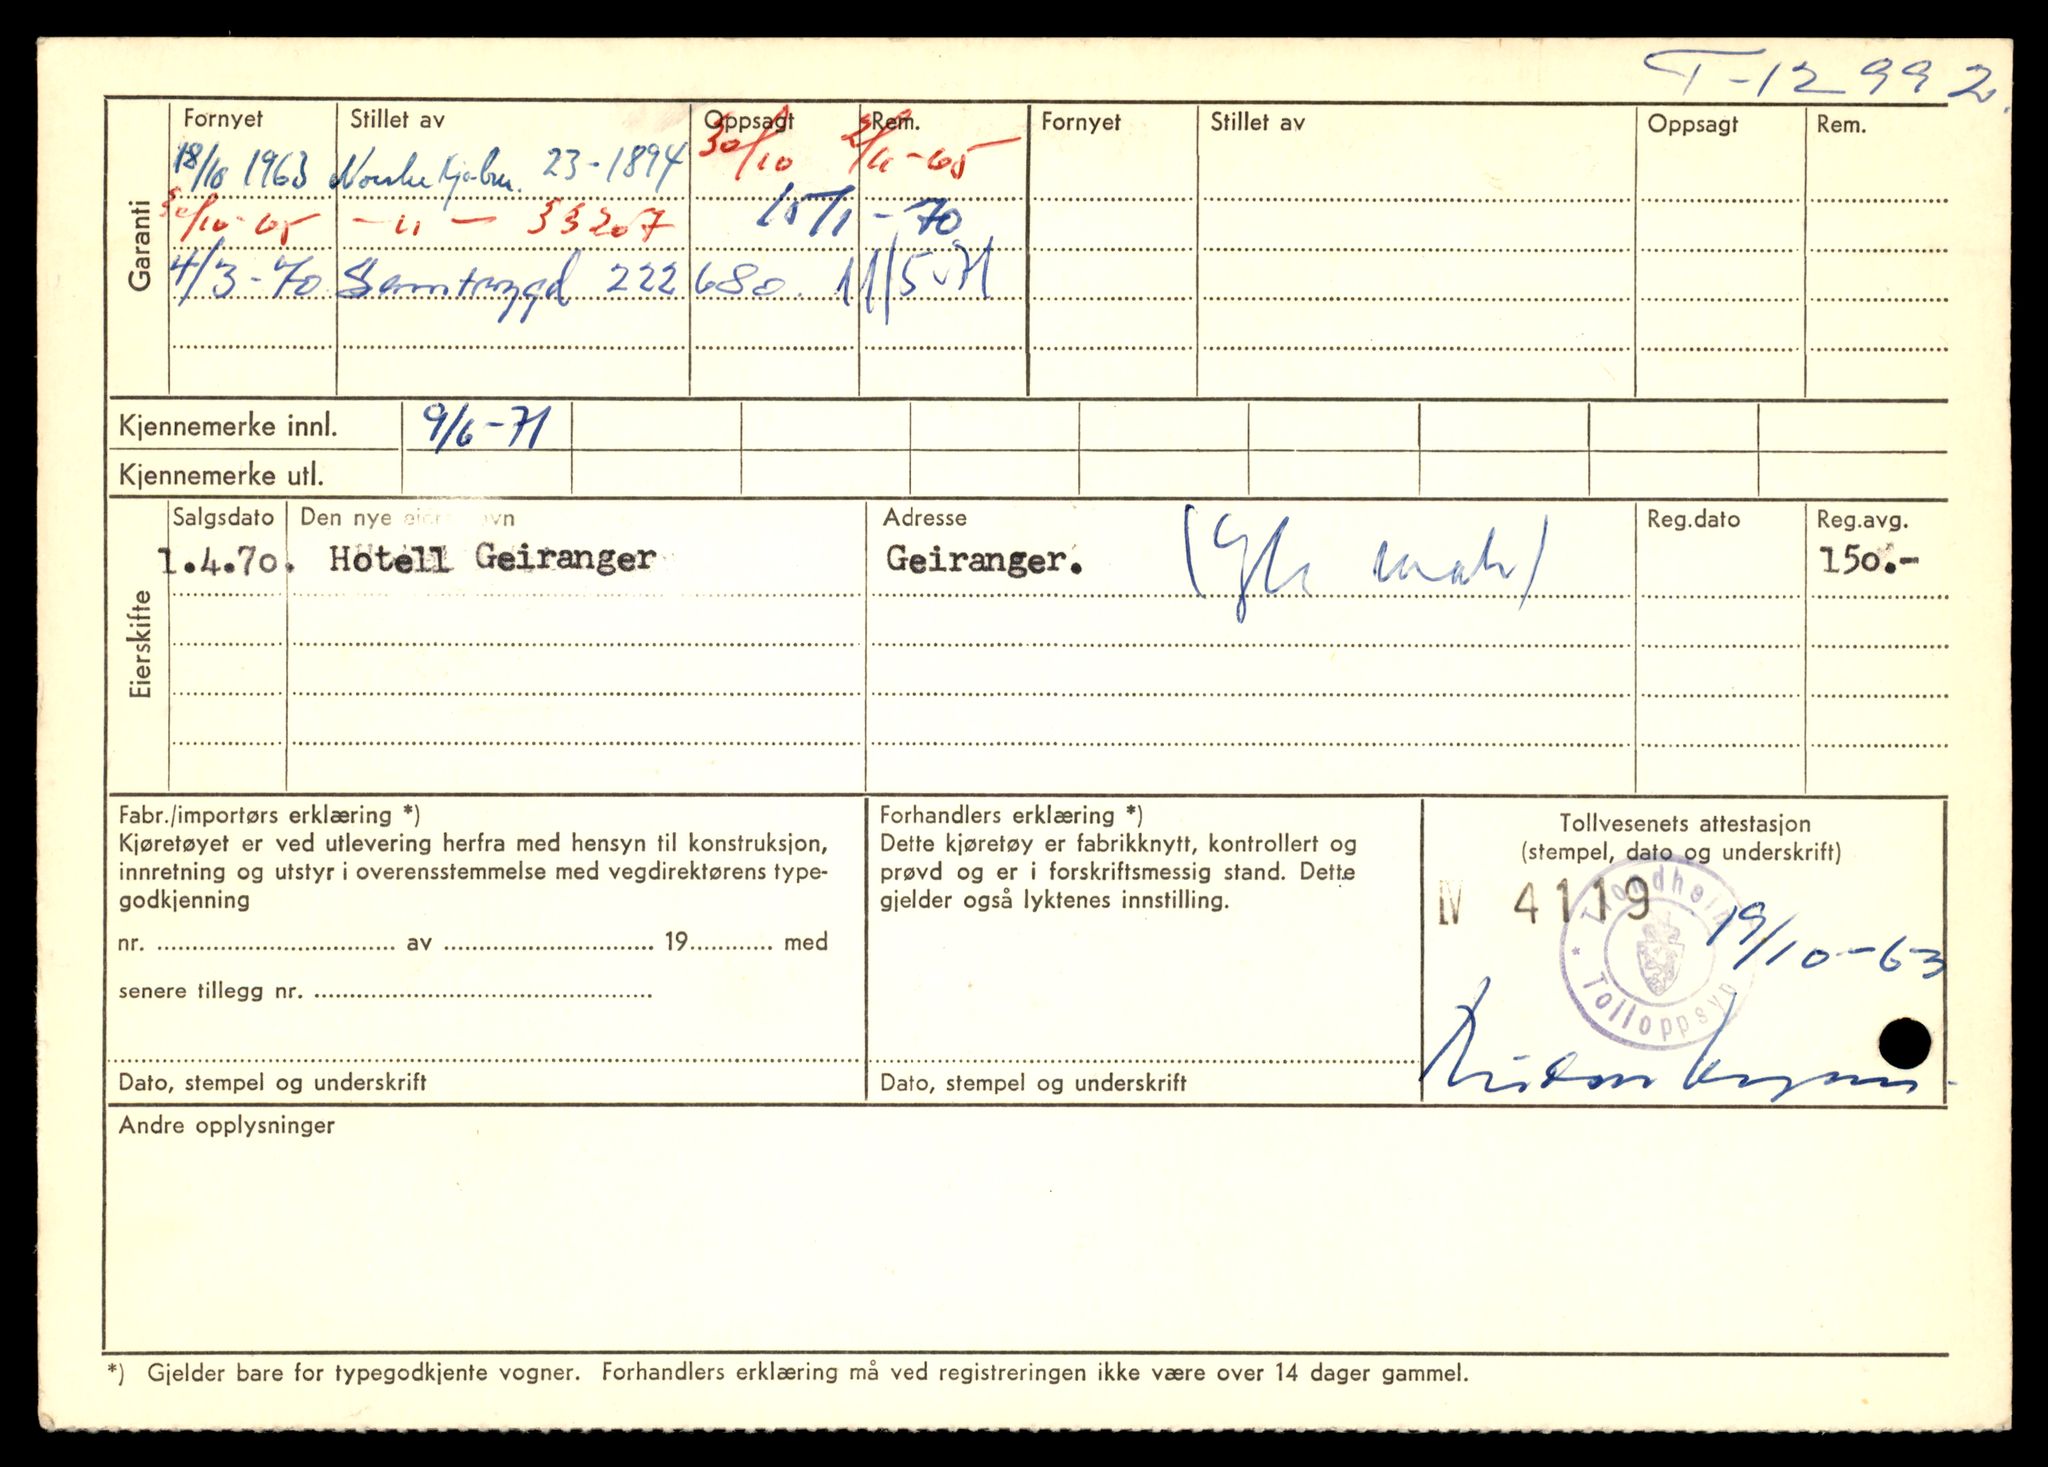 T-12992.
Fornyet Stillet av Oppsagt Rem. Fornyet Stillet av Oppsagt Rem.
Garanti
18/10 1963 Norske 23-1894 30/10 2/11-65
30/10-65 -"- 33207 15/1-70
4/3-70 Samtrygd 222680. 11/5-71
Kjennemerke innl. 9/6-71
Kjennemerke utl.
Eierskifte
Salgsdato Den nye Adresse Reg.dato Reg.avg.
1.4.70. Hotell Geiranger Geiranger. 150.-
Fabr./importørs erklæring *)
Kjøretøyet er ved utlevering herfra med hensyn til konstruksjon,
innretning og utstyr i overensstemmelse med vegdirektørens type-
godkjenning
nr. .......... av .......... 19.......... med
senere tillegg nr. ..........
Dato, stempel og underskrift
Forhandlers erklæring *)
Dette kjøretøy er fabrikknytt, kontrollert og
prøvd og er i forskriftsmessig stand. Dette
gjelder også lyktenes innstilling.
Dato, stempel og underskrift
Tollvesenets attestasjon
(stempel, dato og underskrift)
IV 4119
Trondheim
* Tolloppsyn
19/10-63
Andre opplysninger
*) Gjelder bare for typegodkjente vogner. Forhandlers erklæring må ved registreringen ikke være over 14 dager gammel.